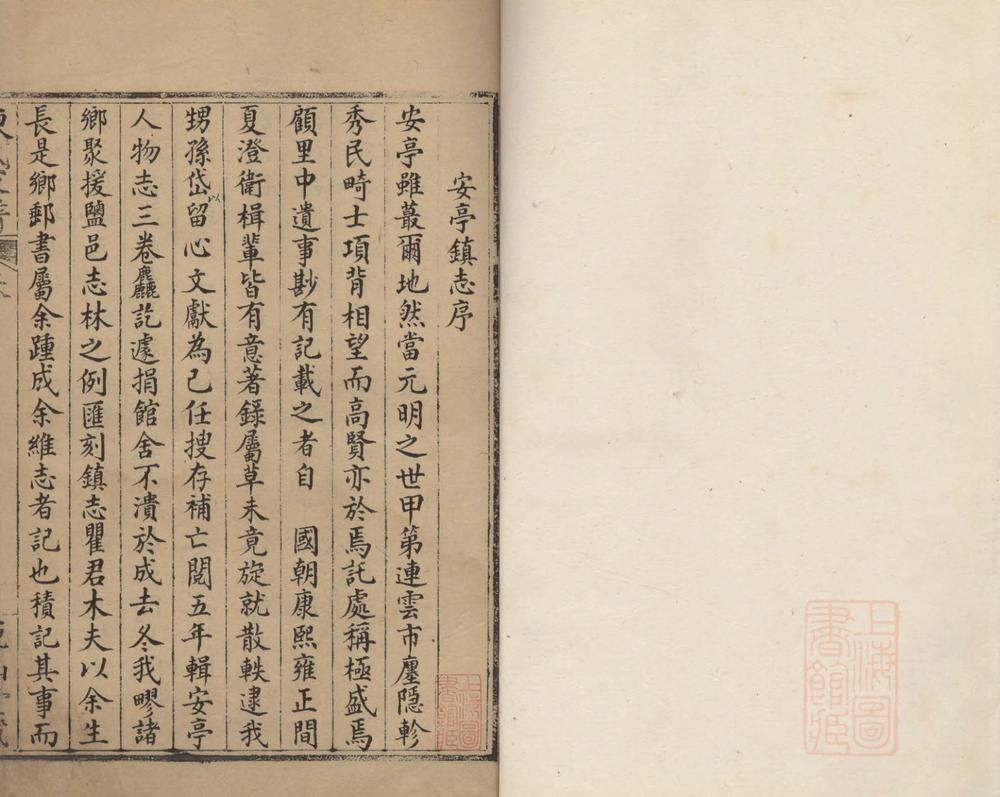 安亭鎮志序
安亭雖蕞爾地然當元明之世甲第連雲市廛隱軫
秀民畸士項背相望而高賢亦於焉託處稱極盛焉
顧里中遺事尠有記載之者自　國朝康熙雍正間
夏澄衛楫輩皆有意著錄屬草未竟旋就散軼逮我
甥孫岱以留心文獻為己任搜存補亡閱五年輯安亭
人物志三卷麤訖遽捐館舍不潰於成去冬我疁諸
鄉聚援鹽邑志林之例匯刻鎮志瞿君木夫以余生
長是鄉郵書屬余踵成余維志者記也積記其事而
上海圖書館藏
上海圖書館藏